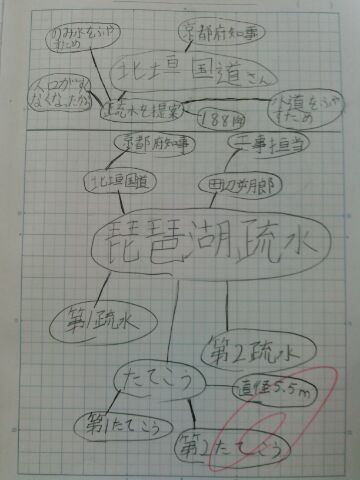 のみ水をふやすため
京都府知事
北垣国道さん
人口が少なくなったから
疏水を提案
188円
水道をふやすため
京都府知事
工事担当
北垣国道
田辺朔郎
琵琶湖疏水
第1疏水
第2疏水
たてこう
直径5.5m
第1たてこう
第2たてこう